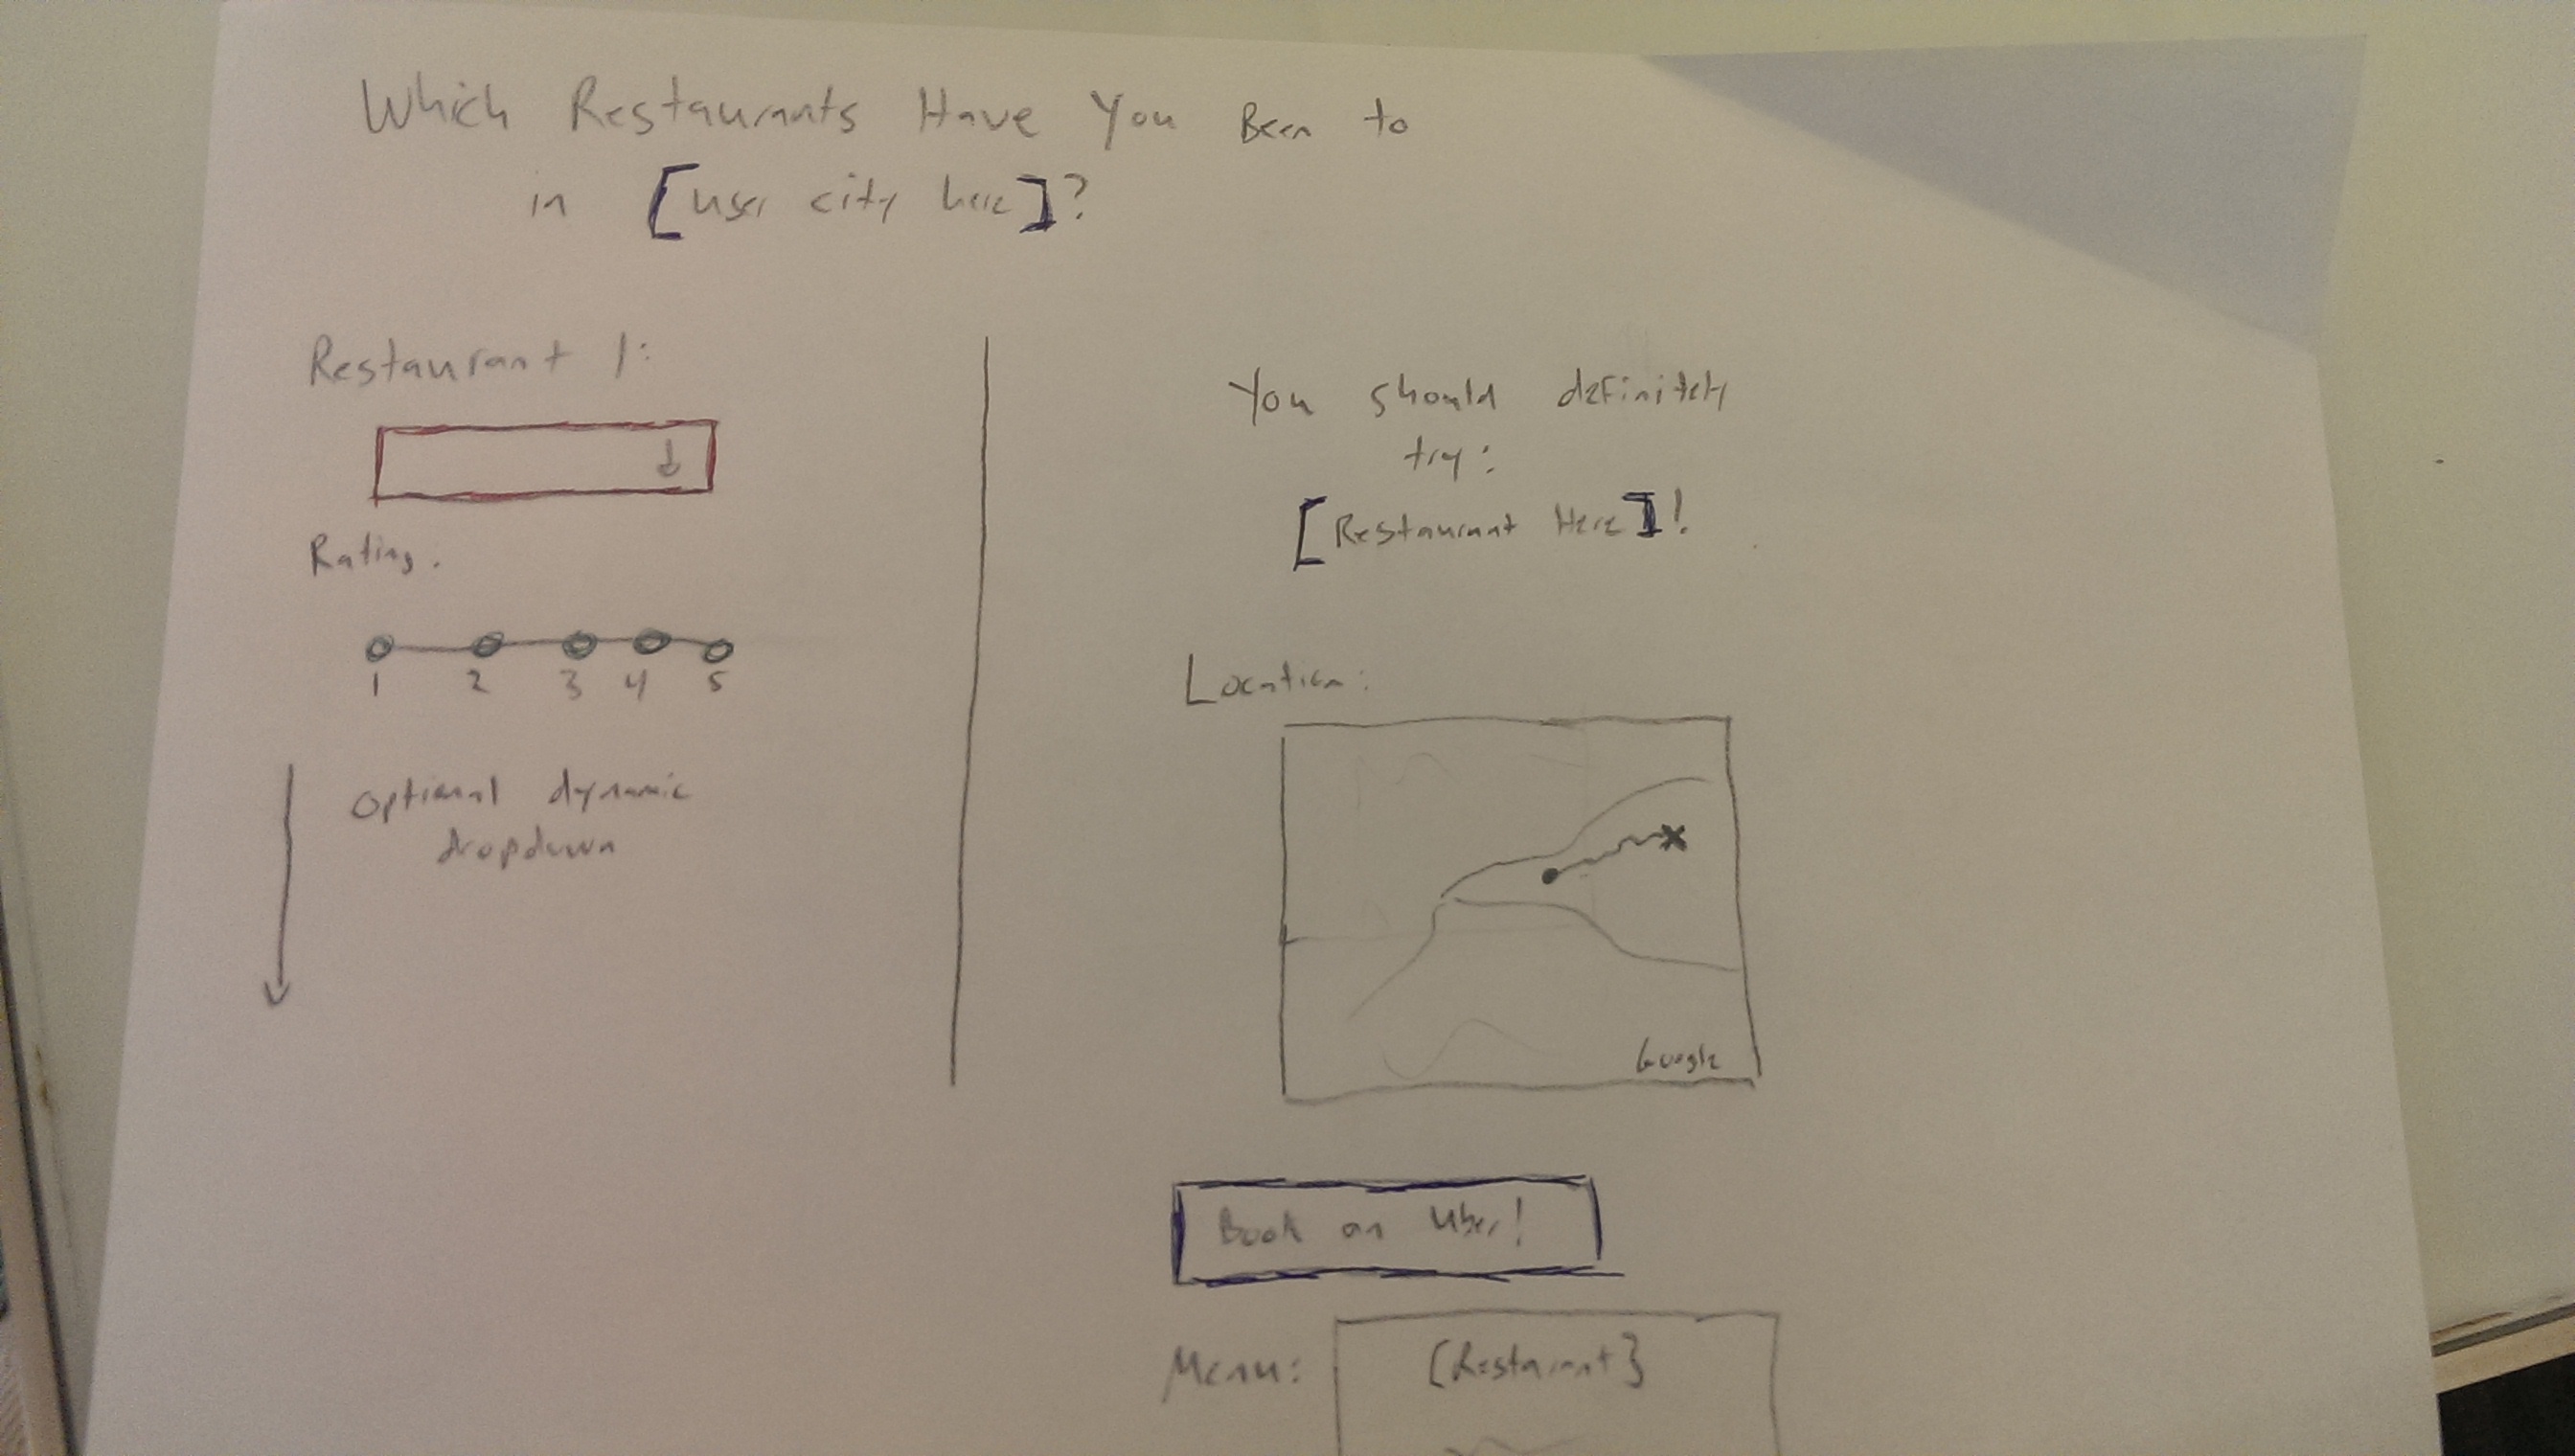 Which Restaurants Have You Been to
in [user city here]?
Restaurant 1:
Rating:
1 2 3 4 5
Optional dynamic
dropdown
You should definitely
try:
[Restaurant Here]!
Location:
Google
Book an Uber!
Menu:
{Restaurant}